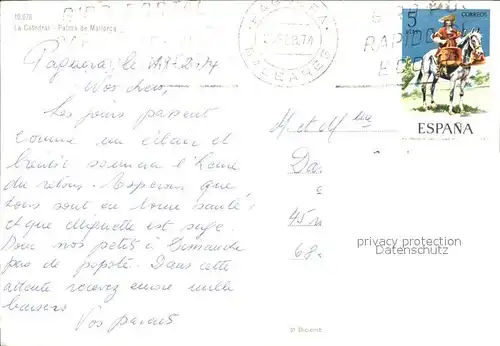 10.078
La Catedral - Palma de Mallorca
PAGUERA
BALEARES
RAPIDO
5
CORREOS
ESPAÑA
Paguera, le 17-2-74
Nos chers,
Les jours passent
comme un éclair et
bientôt sonnera l'heure
du retour. Espérons que
tous sont en bonne santé
et que Mignette est sage.
Donc nos petits à Dimanche
pas de popote. Dans cette
attente recevez encore mille
baisers
Vos parents
M et Mme
Da
45
68
privacy protection
Datenschutz